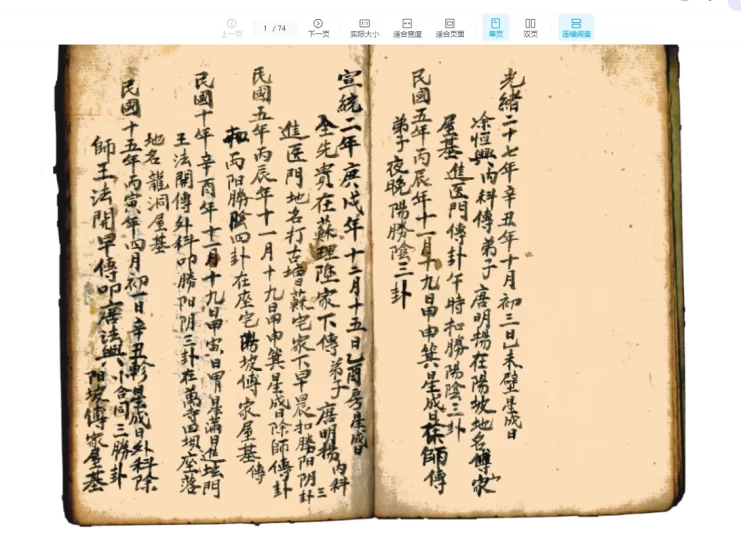 上一页
1 / 74
下一页
实际大小
适合宽度
适合页面
单页
双页
连续阅读
光緒二十七年辛丑年十月初三日己未壁星成日
涂恒興內科傳弟子唐明楊在陽坡地名傅家
屋基進医門傳卦午時扣勝陽陰三卦
民國五年丙辰年十一月十九日甲申箕星成日徐師傳
弟子夜晚陽勝陰三卦
宣統二年庚戌年十二月十五日乙酉房星成日
全先貴在蘇理陰家下傳弟子唐明楊內科
進医門地名打古壋蘇宅家下早晨扣勝阳阴卦三
民國五年丙辰年十一月十九日甲申箕星成日除師傳卦
丙阳勝陰四卦在座宅陽坡傅家屋基傳
民國十年辛酉年十二月十九日甲寅日胃星滿日進坛門
王法開傳外科叩勝阳阴三卦在萬寺田坝座落
地名龍洞屋基
民國十五年丙寅年四月初一日辛丑軫星成日外科除
師王法開早傳叩唐法興小合同三勝卦
阳坡傅家屋基